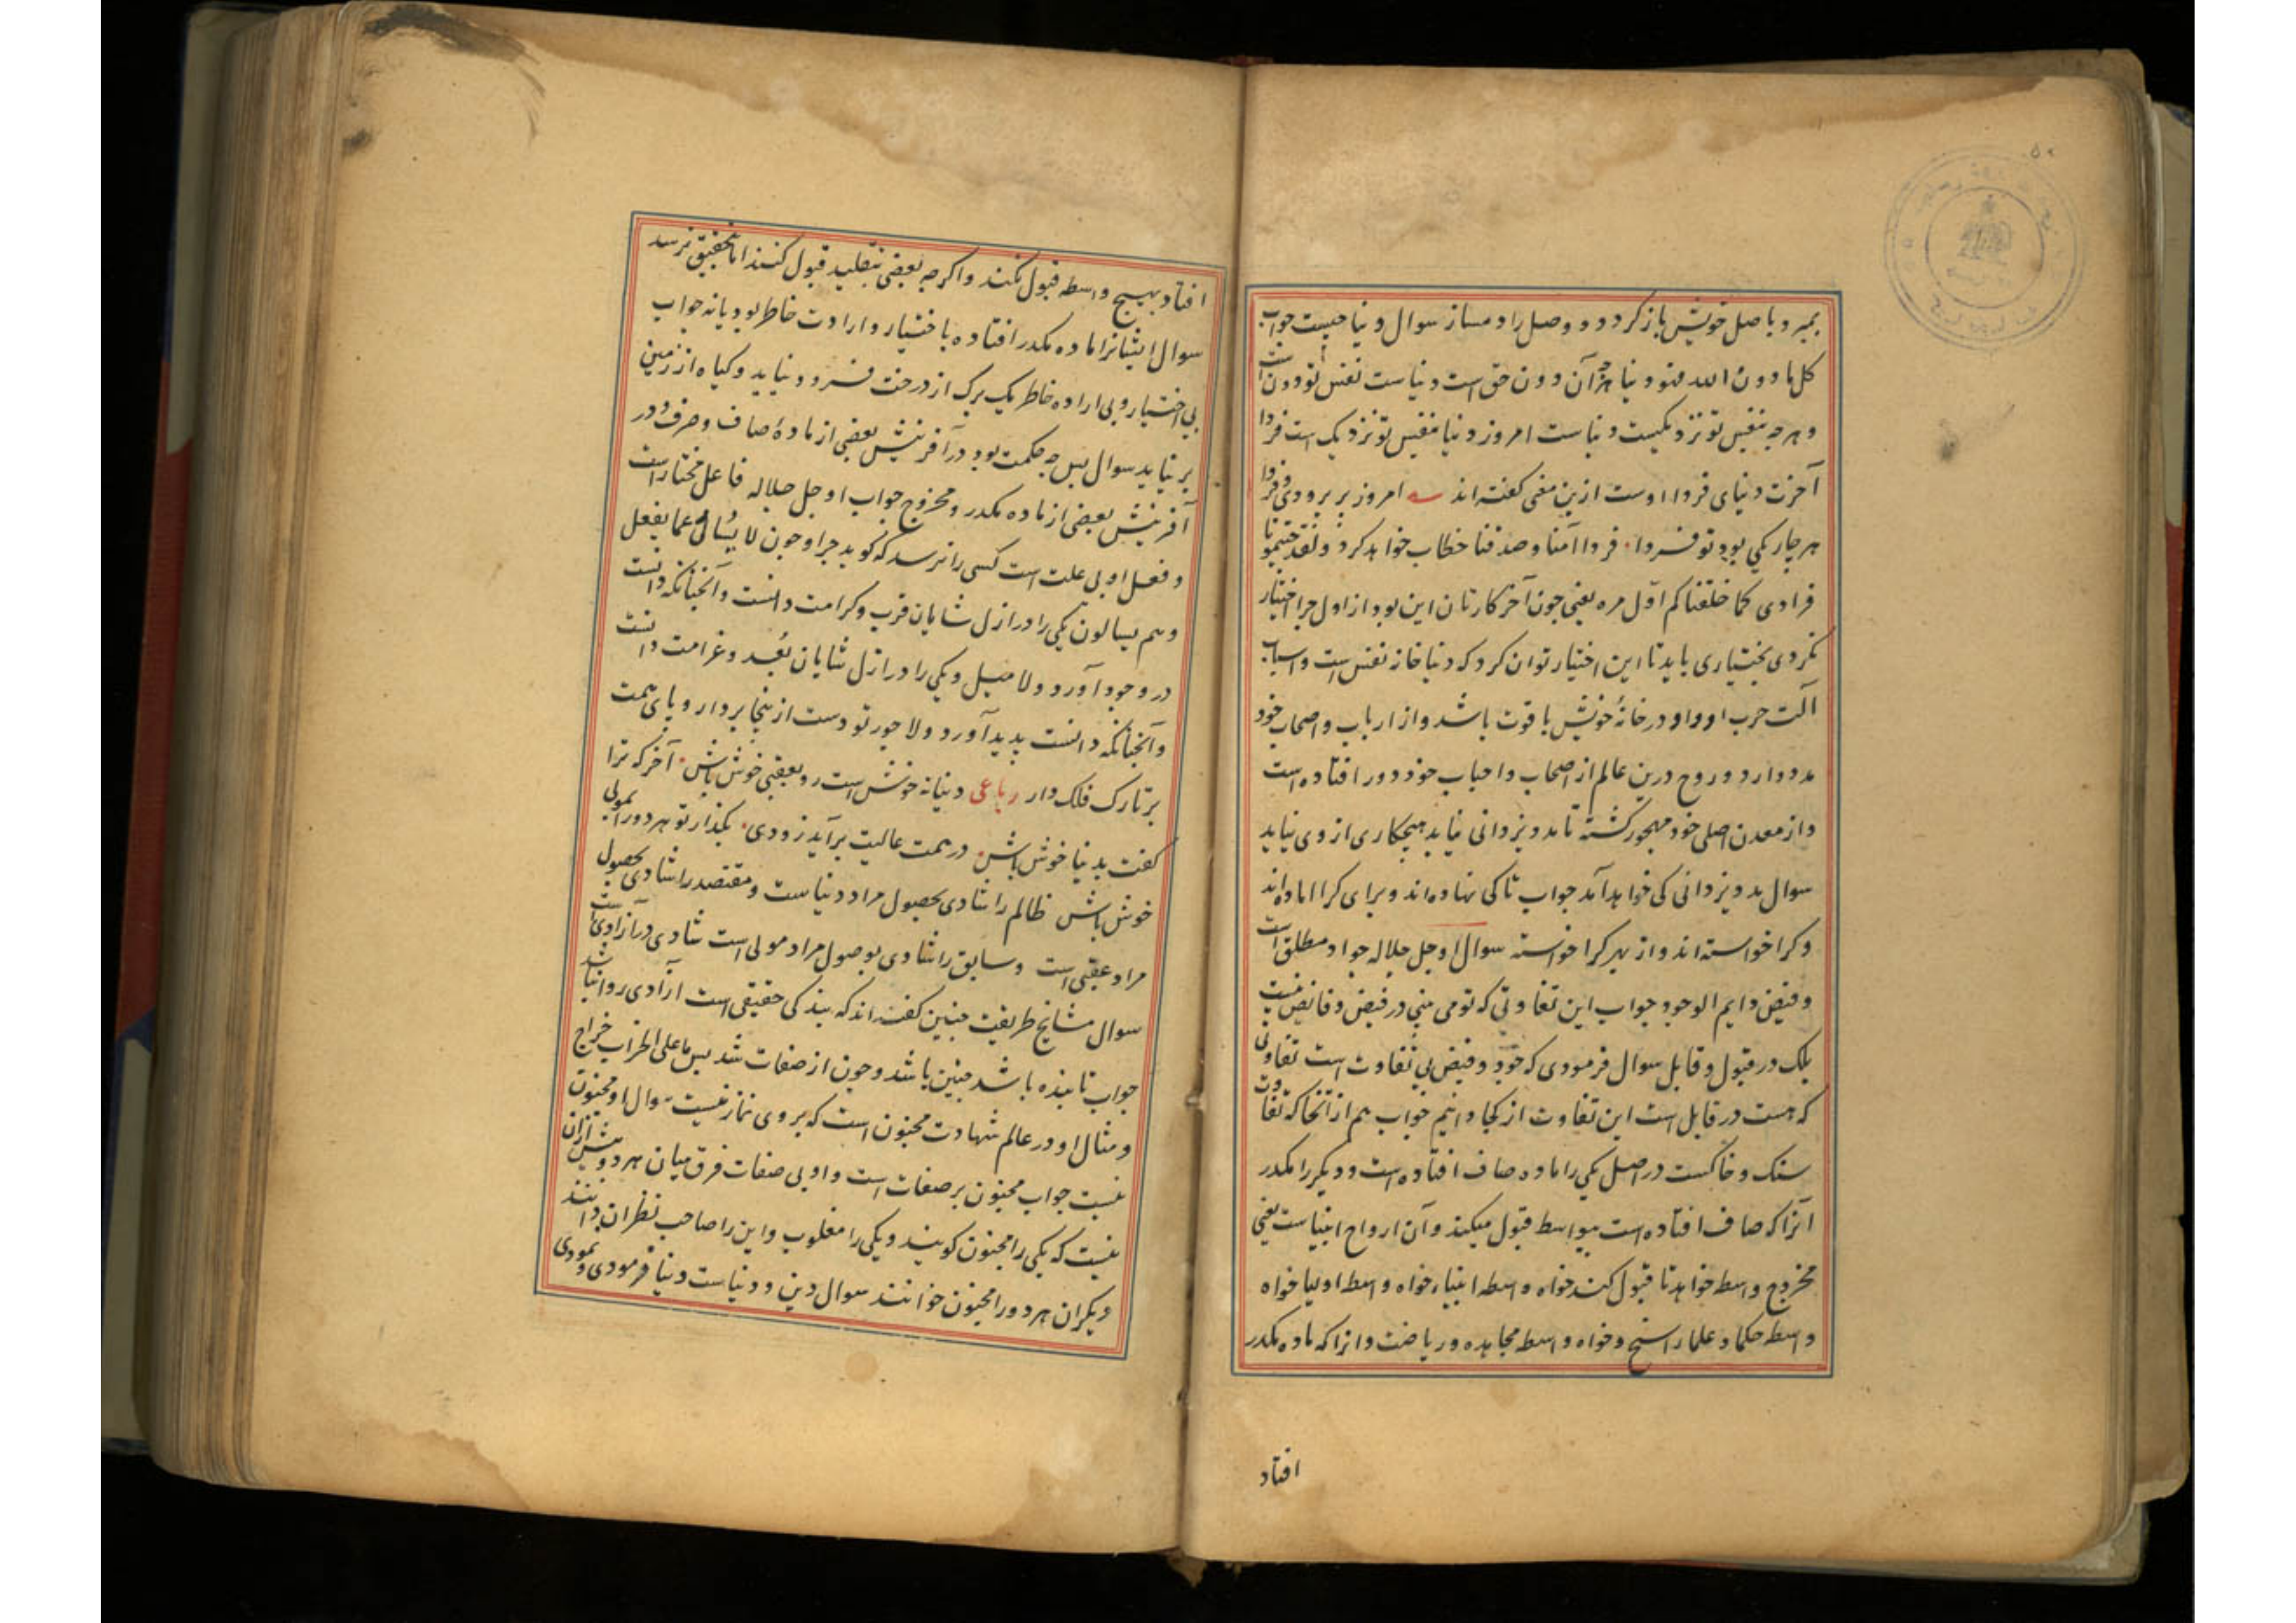 بمیرد با صل خویش باز کردد و وصل را دمساز سوال دنیا چیست جواب
کل ما دون الله فهو دنیا هرچه آن دون حق است دنیاست نفس تو دون است
و هرچه بنفس تو نزدیکست دنیاست امروز دنیا بنفس تو نزدیک است فردا
آخرت دنیای فردا اوست ازین معنی گفته اند امروز پریر و دی و فردا
هر چار یکی بود تو فردا فردا آمنا و صدقنا خطاب خواهد کرد و لقد جئتمونا
فرادی کما خلقناکم اول مره یعنی چون آخر کارتان این بود از اول چرا اختیار
نکردی بختیاری باید تا این اختیار توان کرد که دنیا خانه نفس است و اسباب
آلت حرب او و او در خانهٔ خویش با قوت باشد و از ارباب و اصحاب خود
مدد دارد و روح درین عالم از اصحاب و احباب خود دور افتاده است
و از معدن اصلی خود مهجور گشته تا مدد یزدانی نیاید هیچکاری از وی نیاید
سوال مدد یزدانی کی خواهد آمد جواب تا کی نهاده اند و برای کرا اماده اند
و کرا خواسته اند و از بهر کرا خواسته سوال او جل جلاله جواد مطلق است
و فیض دایم الوجود جواب این تفاوتی که تو می بینی در فیض و فائض نیست
بلک در قبول و قابل سوال فرمودی که جود و فیض بی تفاوت است تفاوتی
که هست در قابل است این تفاوت از کجا دانیم جواب هم از آنجا که تفاوت
سنک و خاکست در اصل یکی را ماده صاف افتاده است و دیگر را مکدر
انرا که صاف افتاده است بیواسط قبول میکند و آن ارواح انبیاست یعنی
مخروج واسط خواهد تا قبول کند خواه واسطه انبیاء خواه واسط اولیا خواه
واسط حکما و علما راسخ و خواه واسط مجاهده و ریاضت و انرا که ماده مکدر
افتاد
افتاد بهیچ واسطه قبول نکند و اکرچه بعضی بتقلید قبول کنند اما بتحقیق نرسد
سوال ایشانرا ماده مکدر افتاده با ختیار و ارادت خاطر بود یا نه جواب
بی اختیار و بی اراده خاطر یک برک از درخت فرو نیاید و کیاه از زمین
بر نیاید سوال پس چه حکمت بود در آفرینش بعضی از مادهٔ صاف و صرف و در
آفرینش بعضی از ماده مکدر و مخروج جواب او جل جلاله فاعل مختار است
و فعل او بی علت است کسی را نرسد که کوید چرا و چون لا یُسأل عما یفعل
و هم یسالون یکی را در ازل شایان قرب و کرامت دانست و آنچنانکه دانست
در وجود آورد و لا میل و یکی را در ازل شایان بُعد و غرامت دانست
و آنچنانکه دانست پدید آورد و لا جور تو دست ازینجا بردار و پای همت
بر تارک فلک دار رباعی دنیا نه خوش است رو بعقبی خوش باش آخر که ترا
کفت بدنیا خوش باش در همت عالیت برآید زودی بکذار تو هر دو را بمولی
خوش باش ظالم را شادی بحصول مراد دنیاست و مقتصد را شادی بحصول
مراد عقبی است و سابق را شادی بوصول مراد مولی است شادی در آزادی است
سوال مشایخ طریقت چنین کفته اند که بندکی حقیقی است آزادی روا نباشد
جواب تا بنده باشد چنین باشد و چون از صفات شد پس ما علی الخراب خراج
و مثال او در عالم شهادت مجنون است که بر وی نماز نیست سوال او مجنون
نیست جواب مجنون بر صفات است و او بی صفات فرق میان هر دو بیش ازان
نیست که یکی را مجنون کویند و یکی را مغلوب و این را صاحب نظران دانند
دیکران هر دو را مجنون خوانند سوال دین و دنیاست دنیا فرمودی و نمودی